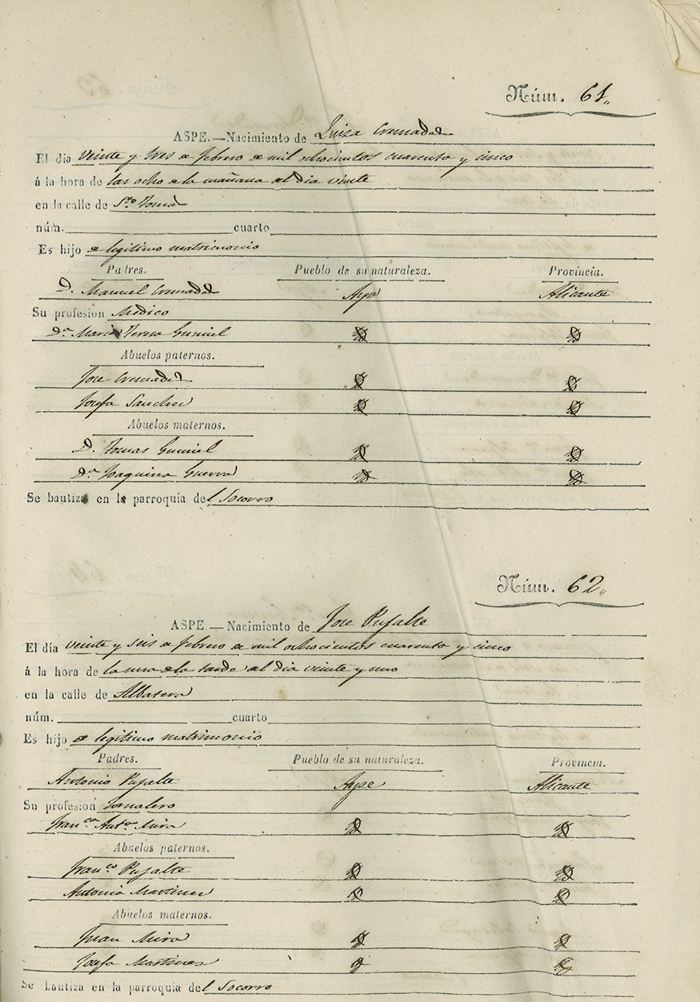 Núm. 61.
ASPE.—Nacimiento de Luiza Cremades
El día veinte y tres de febrero de mil ochocientos cuarenta y cinco
á la hora de las ocho de la mañana del dia veinte
en la calle de Sto. Tomas
núm. cuarto
Es hijo de legitimo matrimonio
Padres. Pueblo de su naturaleza. Provincia.
D. Manuel Cremades Aspe Alicante
Su profesion Medico
Da. Maria Teresa
Abuelos paternos.
Jose Cremades
Josefa Sanchez
Abuelos maternos.
D. Tomas
Da. Joaquina Guerra
Se bautiza en la parroquia del Socorro
Núm. 62.
ASPE.—Nacimiento de Jose Pujalte
El día veinte y seis de febrero de mil ochocientos cuarenta y cinco
á la hora de la una de la tarde del dia veinte y uno
en la calle de Albatera
núm. cuarto
Es hijo de legitimo matrimonio
Padres. Pueblo de su naturaleza. Provincia.
Antonio Pujalte Aspe Alicante
Su profesion Jornalero
Franca. Anta. Mira
Abuelos paternos.
Franco. Pujalte
Antonia Martinez
Abuelos maternos.
Juan Mira
Josefa Martinez
Se bautiza en la parroquia del Socorro